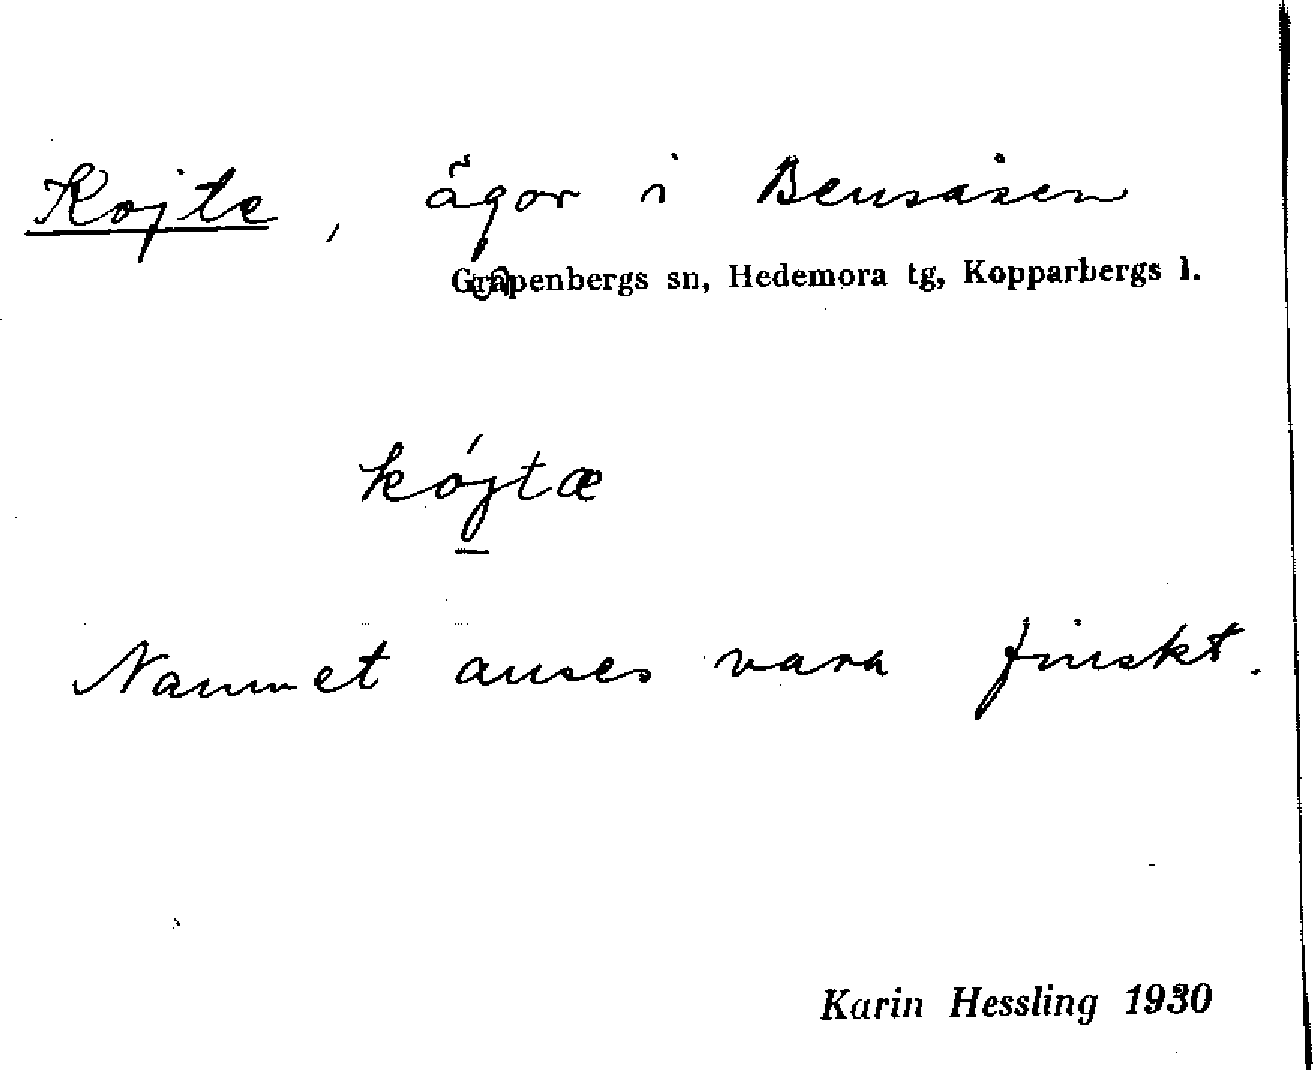 Kojte, ägor i Bensåsen
Garpenbergs sn, Hedemora tg, Kopparbergs l.
kójtæ
Namnet anses vara finskt.
Karin Hessling 1930